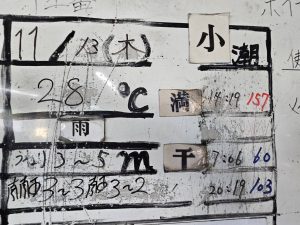 11/13(木) 小潮
28℃ 満 14:19 157
雨
3~5m 干 7:06 60
3~3 3~2 20:19 103